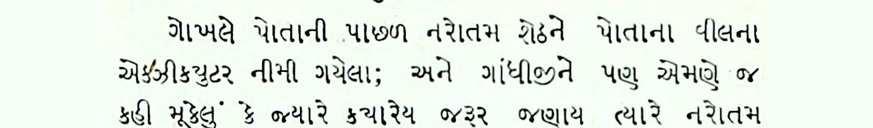 ગોખલે પોતાની પાછળ નરોતમ શેઠને પોતાના વીલના
એક્ઝીક્યુટર નીમી ગયેલા; અને ગાંધીજીને પણ એમણે જ
કહી મૂકેલું કે જ્યારે ક્યારેય જરૂર જણાય ત્યારે નરોતમ